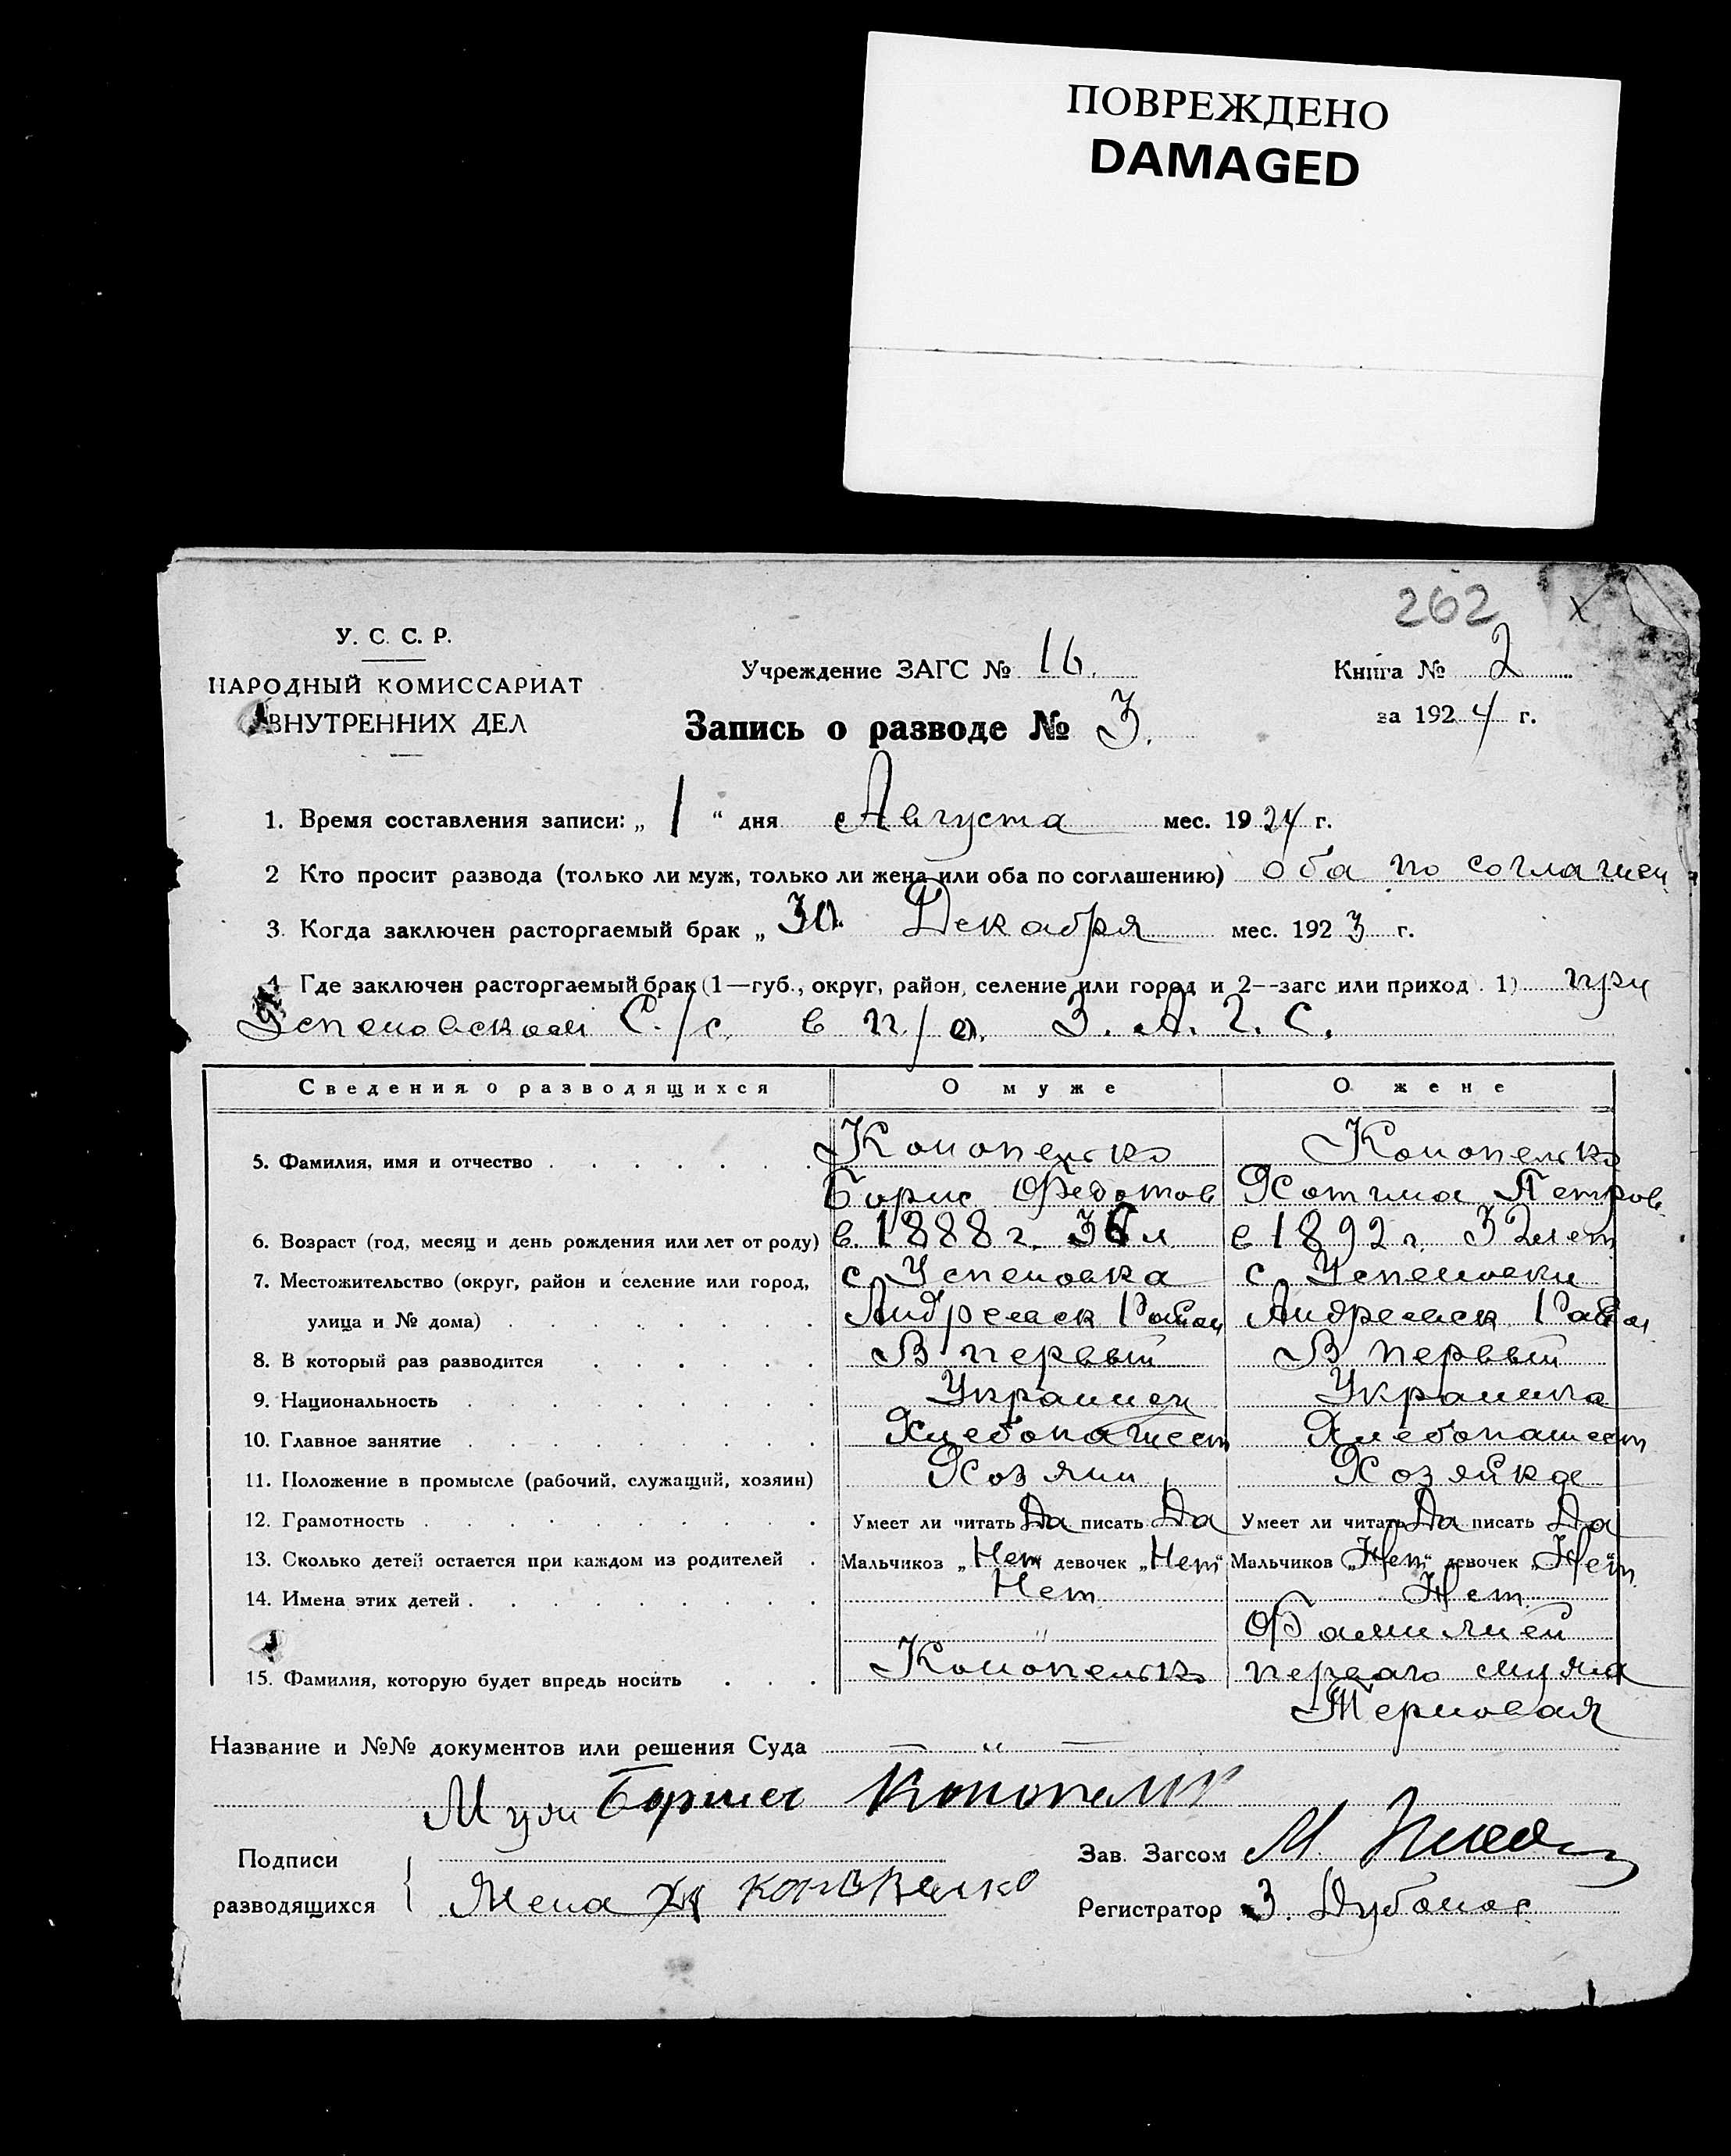 ПОВРЕЖДЕНО
DAMAGED
262 х
У. С. С. Р.
НАРОДНЫЙ КОМИССАРИАТ
ВНУТРЕННИХ ДЕЛ
Учреждение ЗАГС № 16.
Запись о разводе № 3.
Книга № 2
за 1924 г.
1. Время составления записи: „ 1 “ дня Августа мес. 1924 г.
2 Кто просит развода (только ли муж, только ли жена или оба по соглашению) оба по соглашен
3. Когда заключен расторгаемый брак „ 30 Декабря мес. 1923 г.
4 Где заключен расторгаемый брак (1—губ., округ, район, селение или город и 2--загс или приход). 1) при
Успеновском С./с. в п/о. З. А. Г. С.
Сведения о разводящихся О муже О жене
5. Фамилия, имя и отчество Конопелько Конопелько
Борис Федотов Хотина Петров.
6. Возраст (год, месяц и день рождения или лет от роду) в. 1888 г. 36 л в 1892 г. 32 лет
7. Местожительство (округ, район и селение или город, с Успеновка с Успеновки
улица и № дома) Андреевск Район Андреевск Район
8. В который раз разводится В первый В первый
9. Национальность Украинец Украинка
10. Главное занятие Хлебопашест Хлебопашест
11. Положение в промысле (рабочий, служащий, хозяин) Хозяин Хозяйка
12. Грамотность Умеет ли читать Да писать Да Умеет ли читать Да писать Да
13. Сколько детей остается при каждом из родителей Мальчиков „Нет девочек „Нет“ Мальчиков „Нет“ девочек „Нет“
14. Имена этих детей Нет Нет
" Фамилией
15. Фамилия, которую будет впредь носить Конопелько перваго мужа
Терновая
Название и №№ документов или решения Суда — " —
Муж Борис
Подписи
разводящихся Жена
Зав. Загсом М.
Регистратор З.